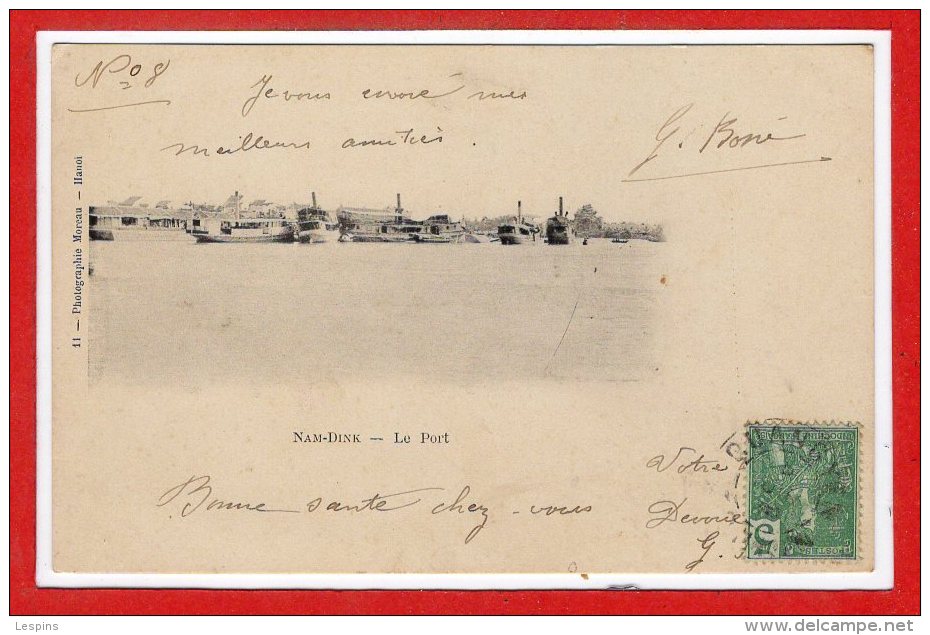 No 8
Je vous envoie mes
meilleurs amitiés.
G. Bonié
11 — Photographie Moreau — Hanoi
NAM-DINK — Le Port
Bonne sante chez-vous
Votre
Devoué
G.
5
POSTES
Lespins
www.delcampe.net